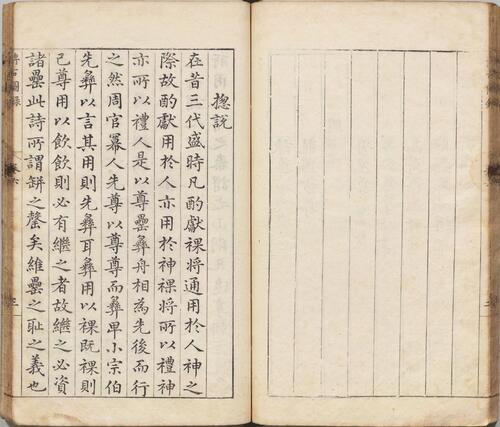 揔說
在昔三代盛時凡酌獻祼將通用於人神之
際故酌獻用於人亦用於神祼將所以禮神
亦所以禮人是以尊罍彝舟相為先後而行
之然周官冪人先尊以尊尊而彝卑小宗伯
先彝以言其用則先彝耳彝用以祼既祼則
已尊用以飲飲則必有繼之者故繼之必資
諸罍此詩所謂缾之罄矣維罍之恥之義也